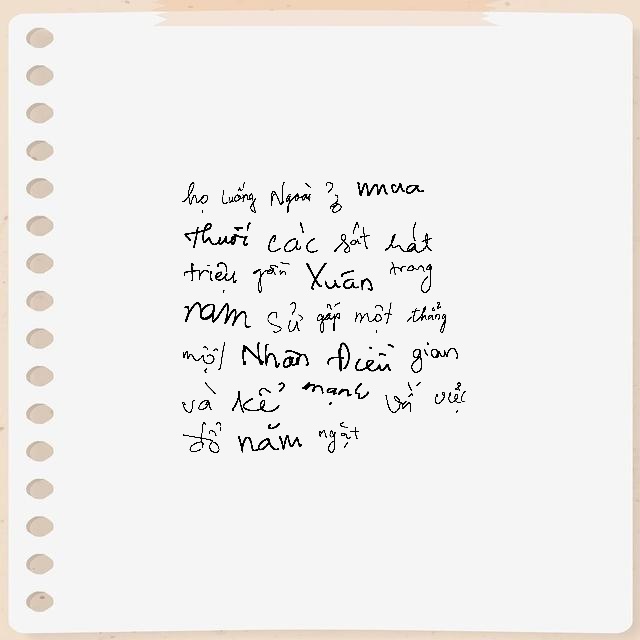 họ Luống Ngoài ở mua
thuôi các sắt hát
triệu gần Xuân trang
năm Sử gấp một thẳng
một Nhân Điền gian
và kể mạnh về việc
đồ năm ngặt